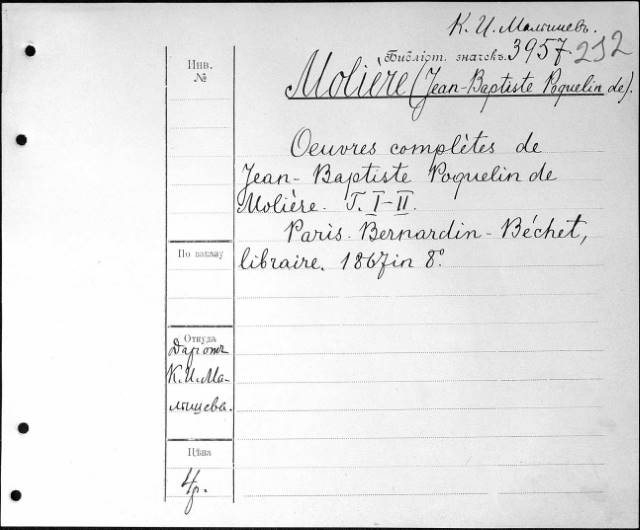 К. И. Малышевъ.
Библіот. значекъ. 3957-252
Инв.
№
Molière (Jean-Baptiste Poquelin de).
Oeuvres complètes de
Jean-Baptiste Poquelin de
Molière. T. I-II.
Paris. Bernardin-Béchet,
По заказу
libraire. 1867 in 8°.
Откуда
Даръ отъ
К. И. Ма-
лышева.
Цѣна
4 р.